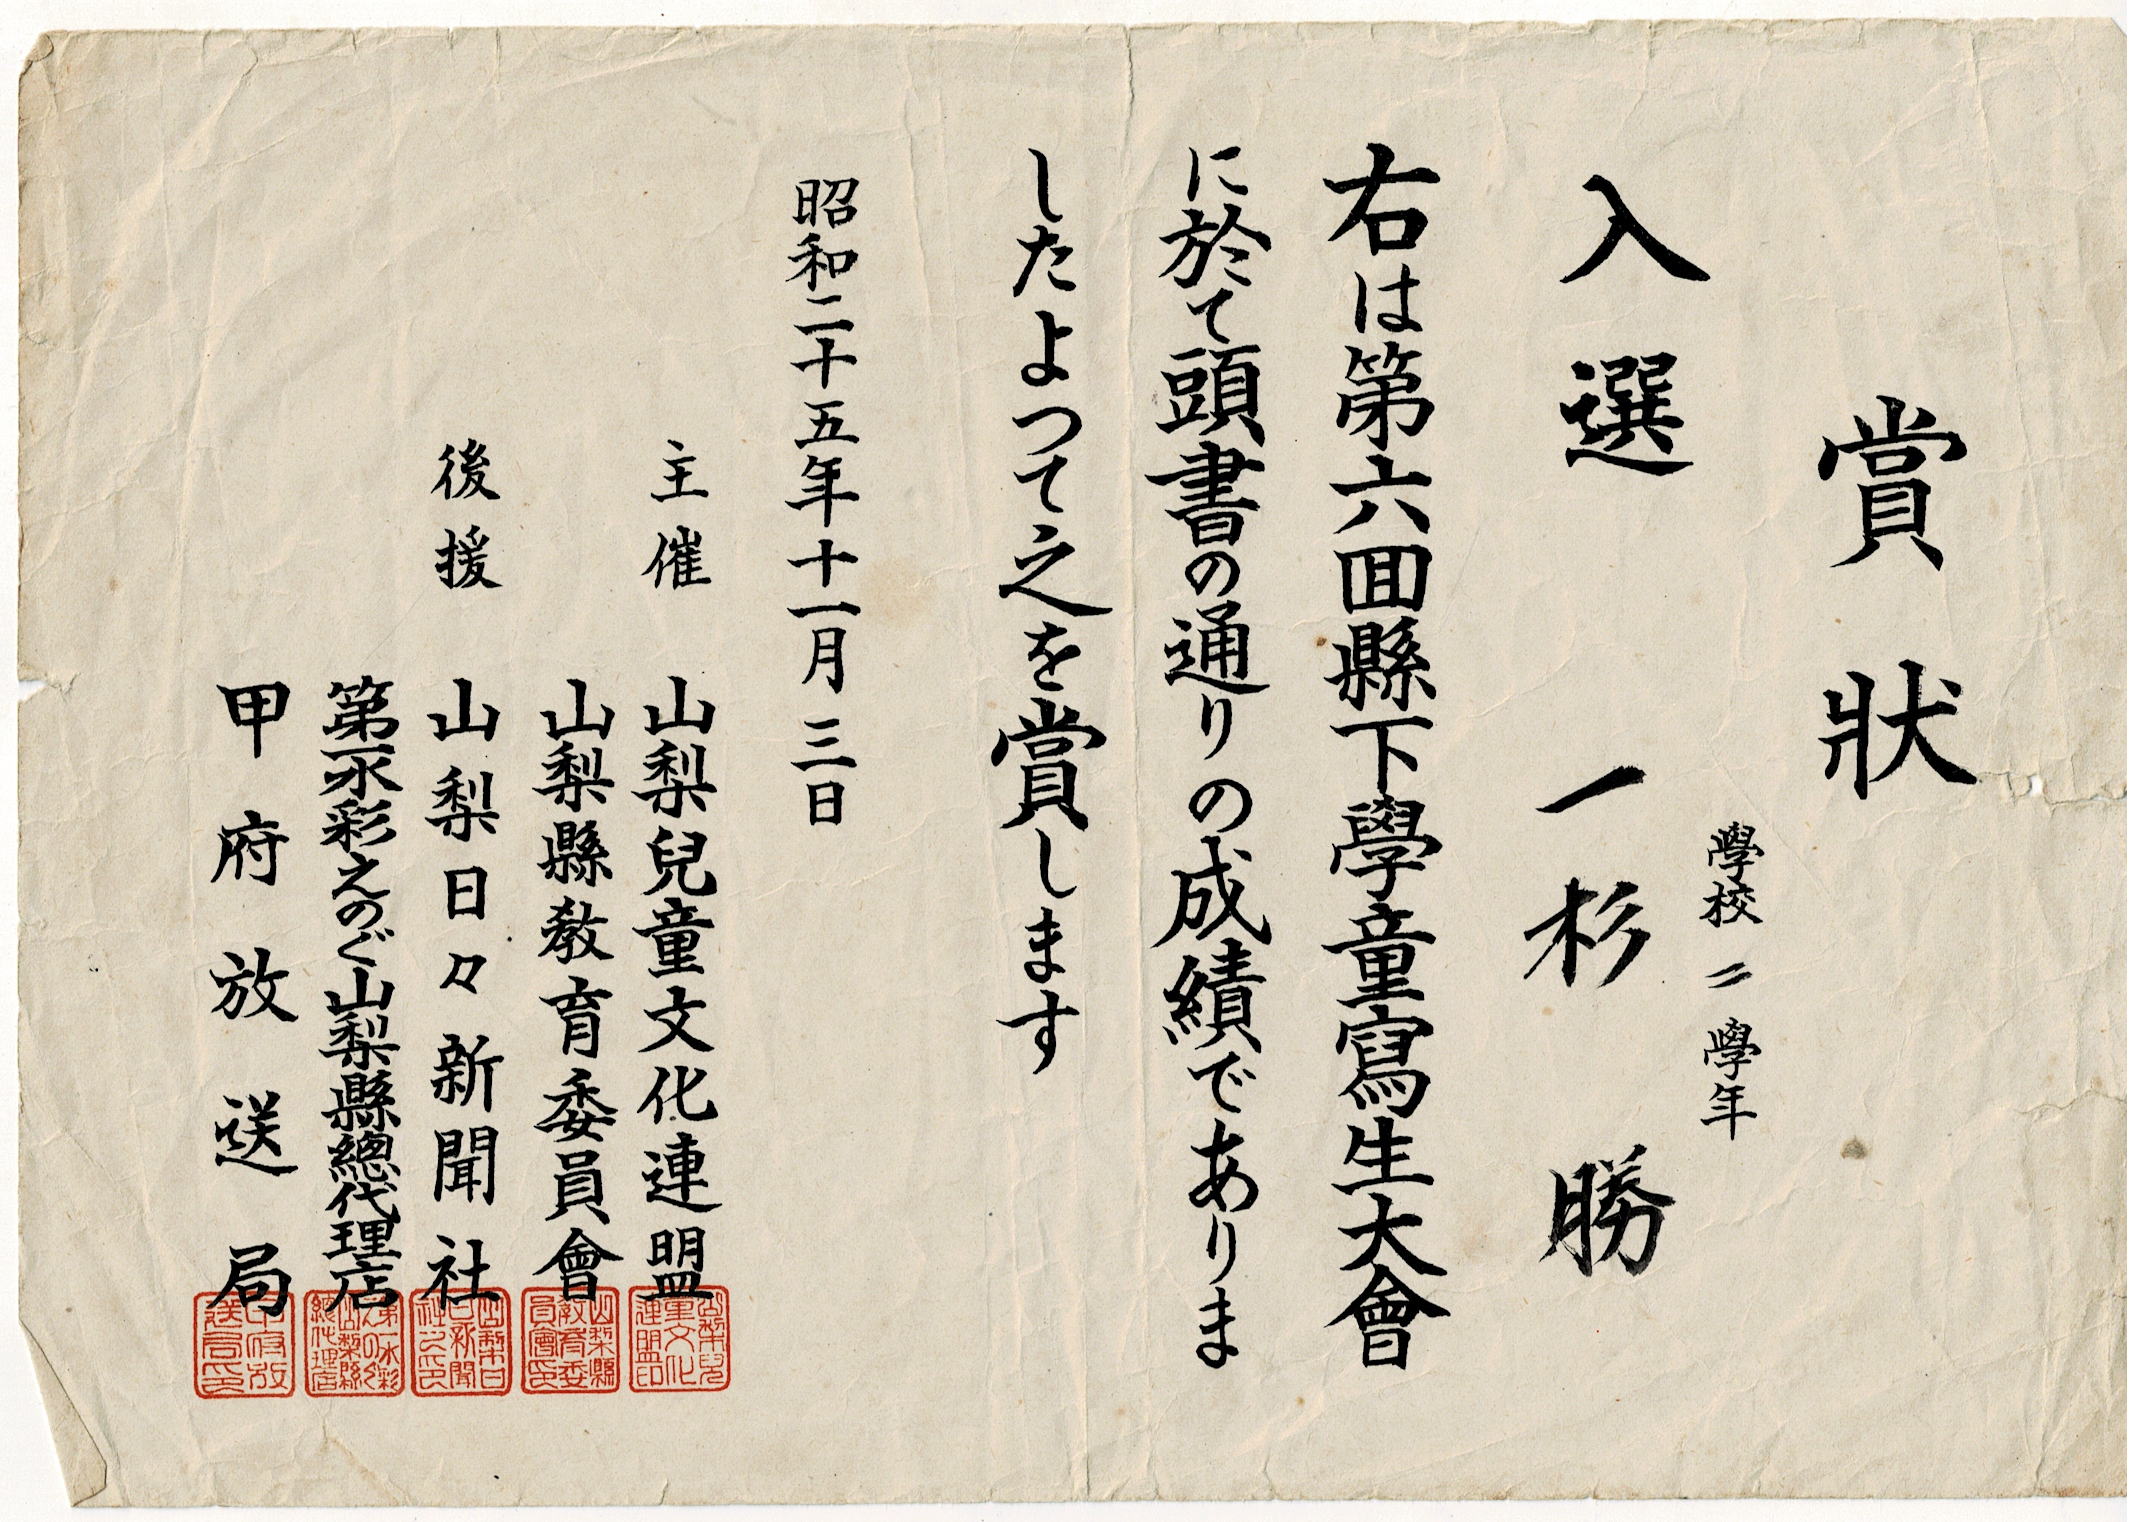 賞狀
學校 二 學年
入選 一杉 勝
右は第六囬縣下學童寫生大會
に於て頭書の通りの成績でありま
したよつて之を賞します
昭和二十五年十一月三日
主催 山梨兒童文化連盟
山梨縣教育委員會
後援 山梨日々新聞社
第一水彩えのぐ山梨縣總代理店
甲府放送局